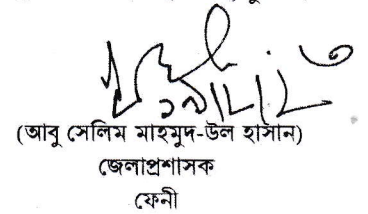 (আবু সেলিম মাহমুদ-উল হাসান)
জেলাপ্রশাসক
ফেনী